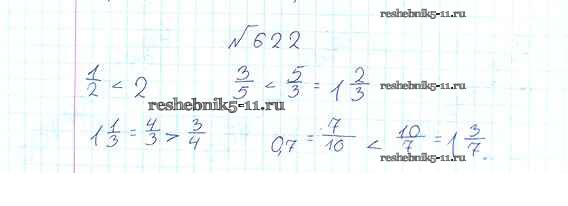 reshebnik5-11.ru
№622
1/2 < 2   3/5 < 5/3 = 1 2/3   reshebnik5-11.ru
reshebnik5-11.ru
1 1/3 = 4/3 > 3/4   0,7 = 7/10 < 10/7 = 1 3/7.
reshebnik5-11.ru